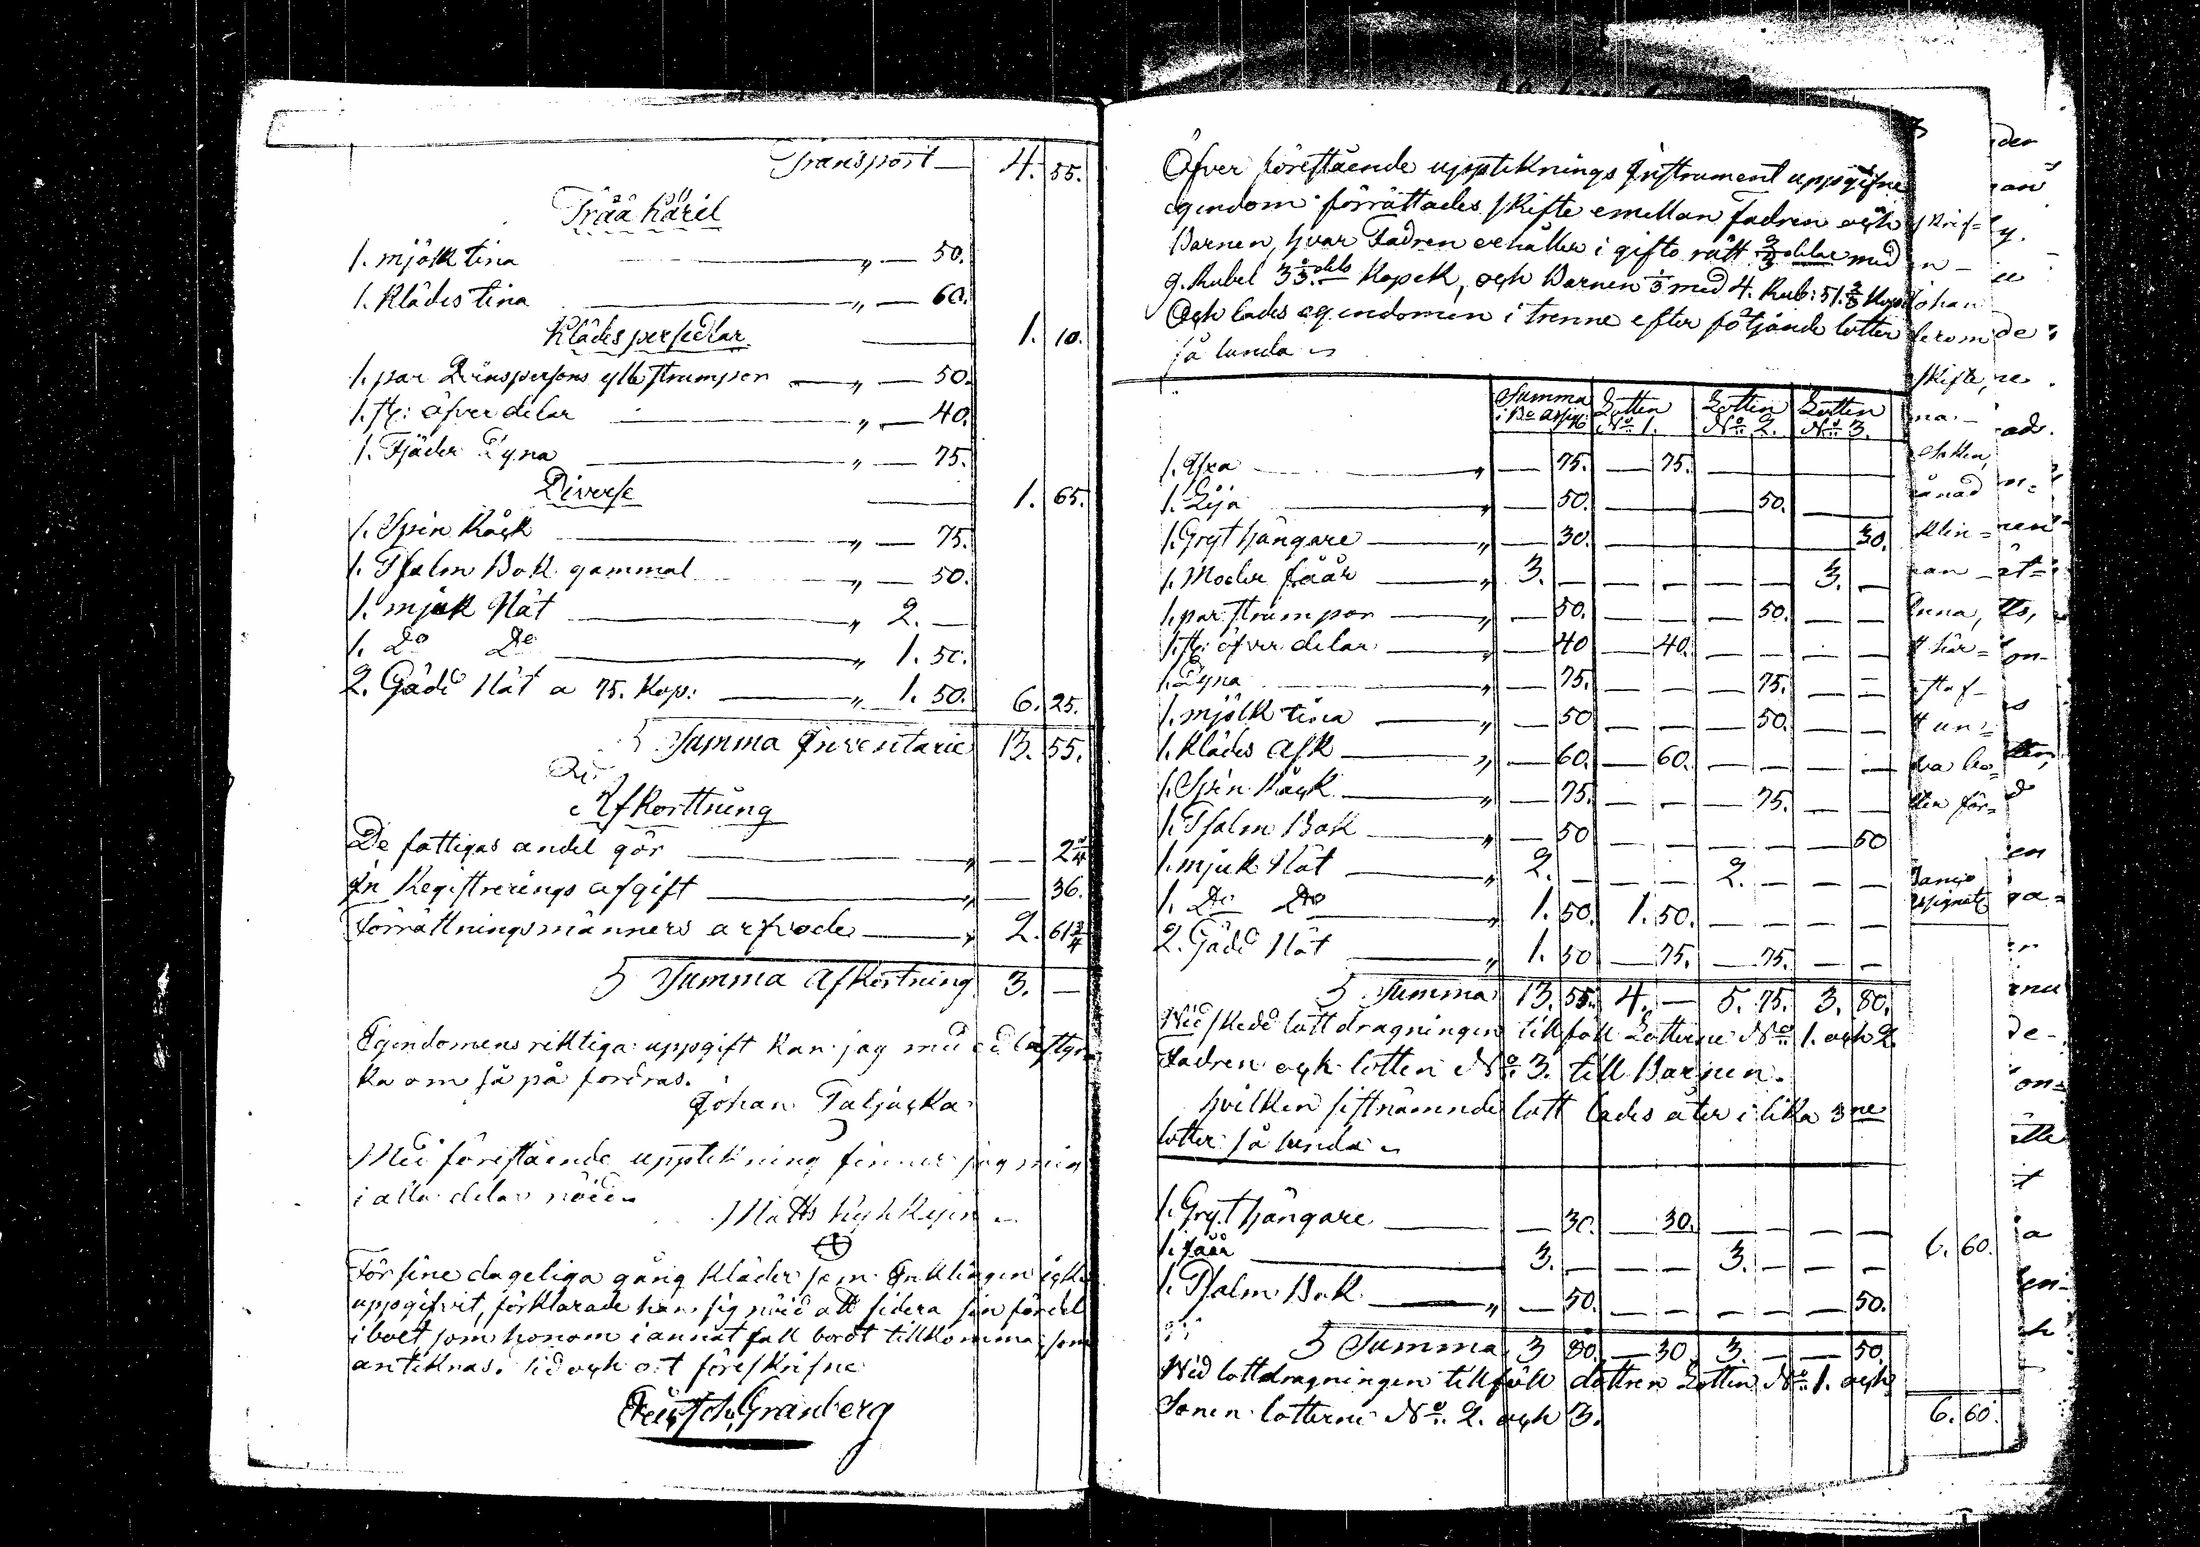 Transport — 4. 55.
Trää Käril
1. mjölk tina — „ — 50.
1. Klädes tina — „ — 60.
Klädes persedlar — 1. 10.
1. par qvinspersons ylle strumpor — „ — 50.
1. st: öfverdelar — „ — 40.
1. Fjäder Dyna — „ — 75.
Diverse — 1. 65.
1. Spin Råck — „ — 75.
1. Psalm Bok gammal — „ — 50.
1. mjuk Nät — „ 2. —
1. Do Do — „ 1. 50.
2. Gädd Nät a 75. Kop: — „ 1. 50. 6. 25.
Summa Inventarie 13. 55.
Afkorttning
De fattigas andel gör — „ — 2 1/4
In Registrerings afgift — „ — 36.
Förrättningsmänners arfvode — „ 2. 61 3/4
Summa Afkortning 3. —
Egendomens riktiga uppgift kan jag med ed bestyr-
ka om så på fordras.
Johan Taljacka
Med förestående uppteckning finner jag mig
i alla delar nöid
Matts
För sine dageliga gång kläder som Enklingen icke
uppgifvit, förklarade han sig nöid att sidera sin fördel
i boet som honom i annat fall bordt tillkomma; som
antecknas. tid och ort föreskrifne
Granberg
Öfver förestående upptecknings Instrument uppgifne
egendom förrättades skifte emellan Fadren och
Barnen, hvar Fadren erhåller i gifto rätt 2/3 delar med
9. Rubel 3 1/3 dels Kopek, och Barnen 1/3 med 4. Rub: 51. 2/3 Kop:
Och lades egendomen i trenne efter följande lotter
så lunda
Summa i Bo Assig: Lotten No 1. Lotten No 2. Lotten No 3.
1. Yxa — „ — 75. — 75. — —
1. Lija — „ — 50. — — 50. —
1. Gryt hängare — „ — 30. — — — 30.
1. Moder fåår — „ 3. — — — — — 3. —
1. par strumpor — „ — 50. — — — 50. — —
1. st: öfverdelar — „ — 40 — 40. — — — —
1. Dyna — „ — 75. — — — 75. — —
1. mjölk tina — „ — 50 — — — 50. — —
1. Klädes Ask — „ — 60. — 60. — — — —
1. Spin Råck — „ — 75. — — — 75. — —
1. Psalm Bok — „ — 50 — — — — — 50
1. mjuk Nät — „ 2. — — — 2. — — —
1. Do Do — „ 1. 50. 1. 50. — — — —
2. Gädd Nät — „ 1. 50 — 75. — 75. — —
Summa 13. 55. 4. — 5. 75. 3. 80.
Vid skedd lottdragningen tillföll Lotterne No 1. och 2.
Fadren och lotten No 3. till Barnen.
hvilken sistnämnde lott lades åter i lika 3ne
lotter så lunda
1. Gryt hängare — — 30. — 30. — — — —
1. Fåår — 3. — — — 3. — — —
1. Psalm Bok — „ — 50. — — — — — 50.
Summa 3 80. — 30 3. — — 50.
Vid lottdragningen tillföll dottren Lotten No 1. och
Sonen lotterne No 2. och 3.
6. 60.
6. 60.